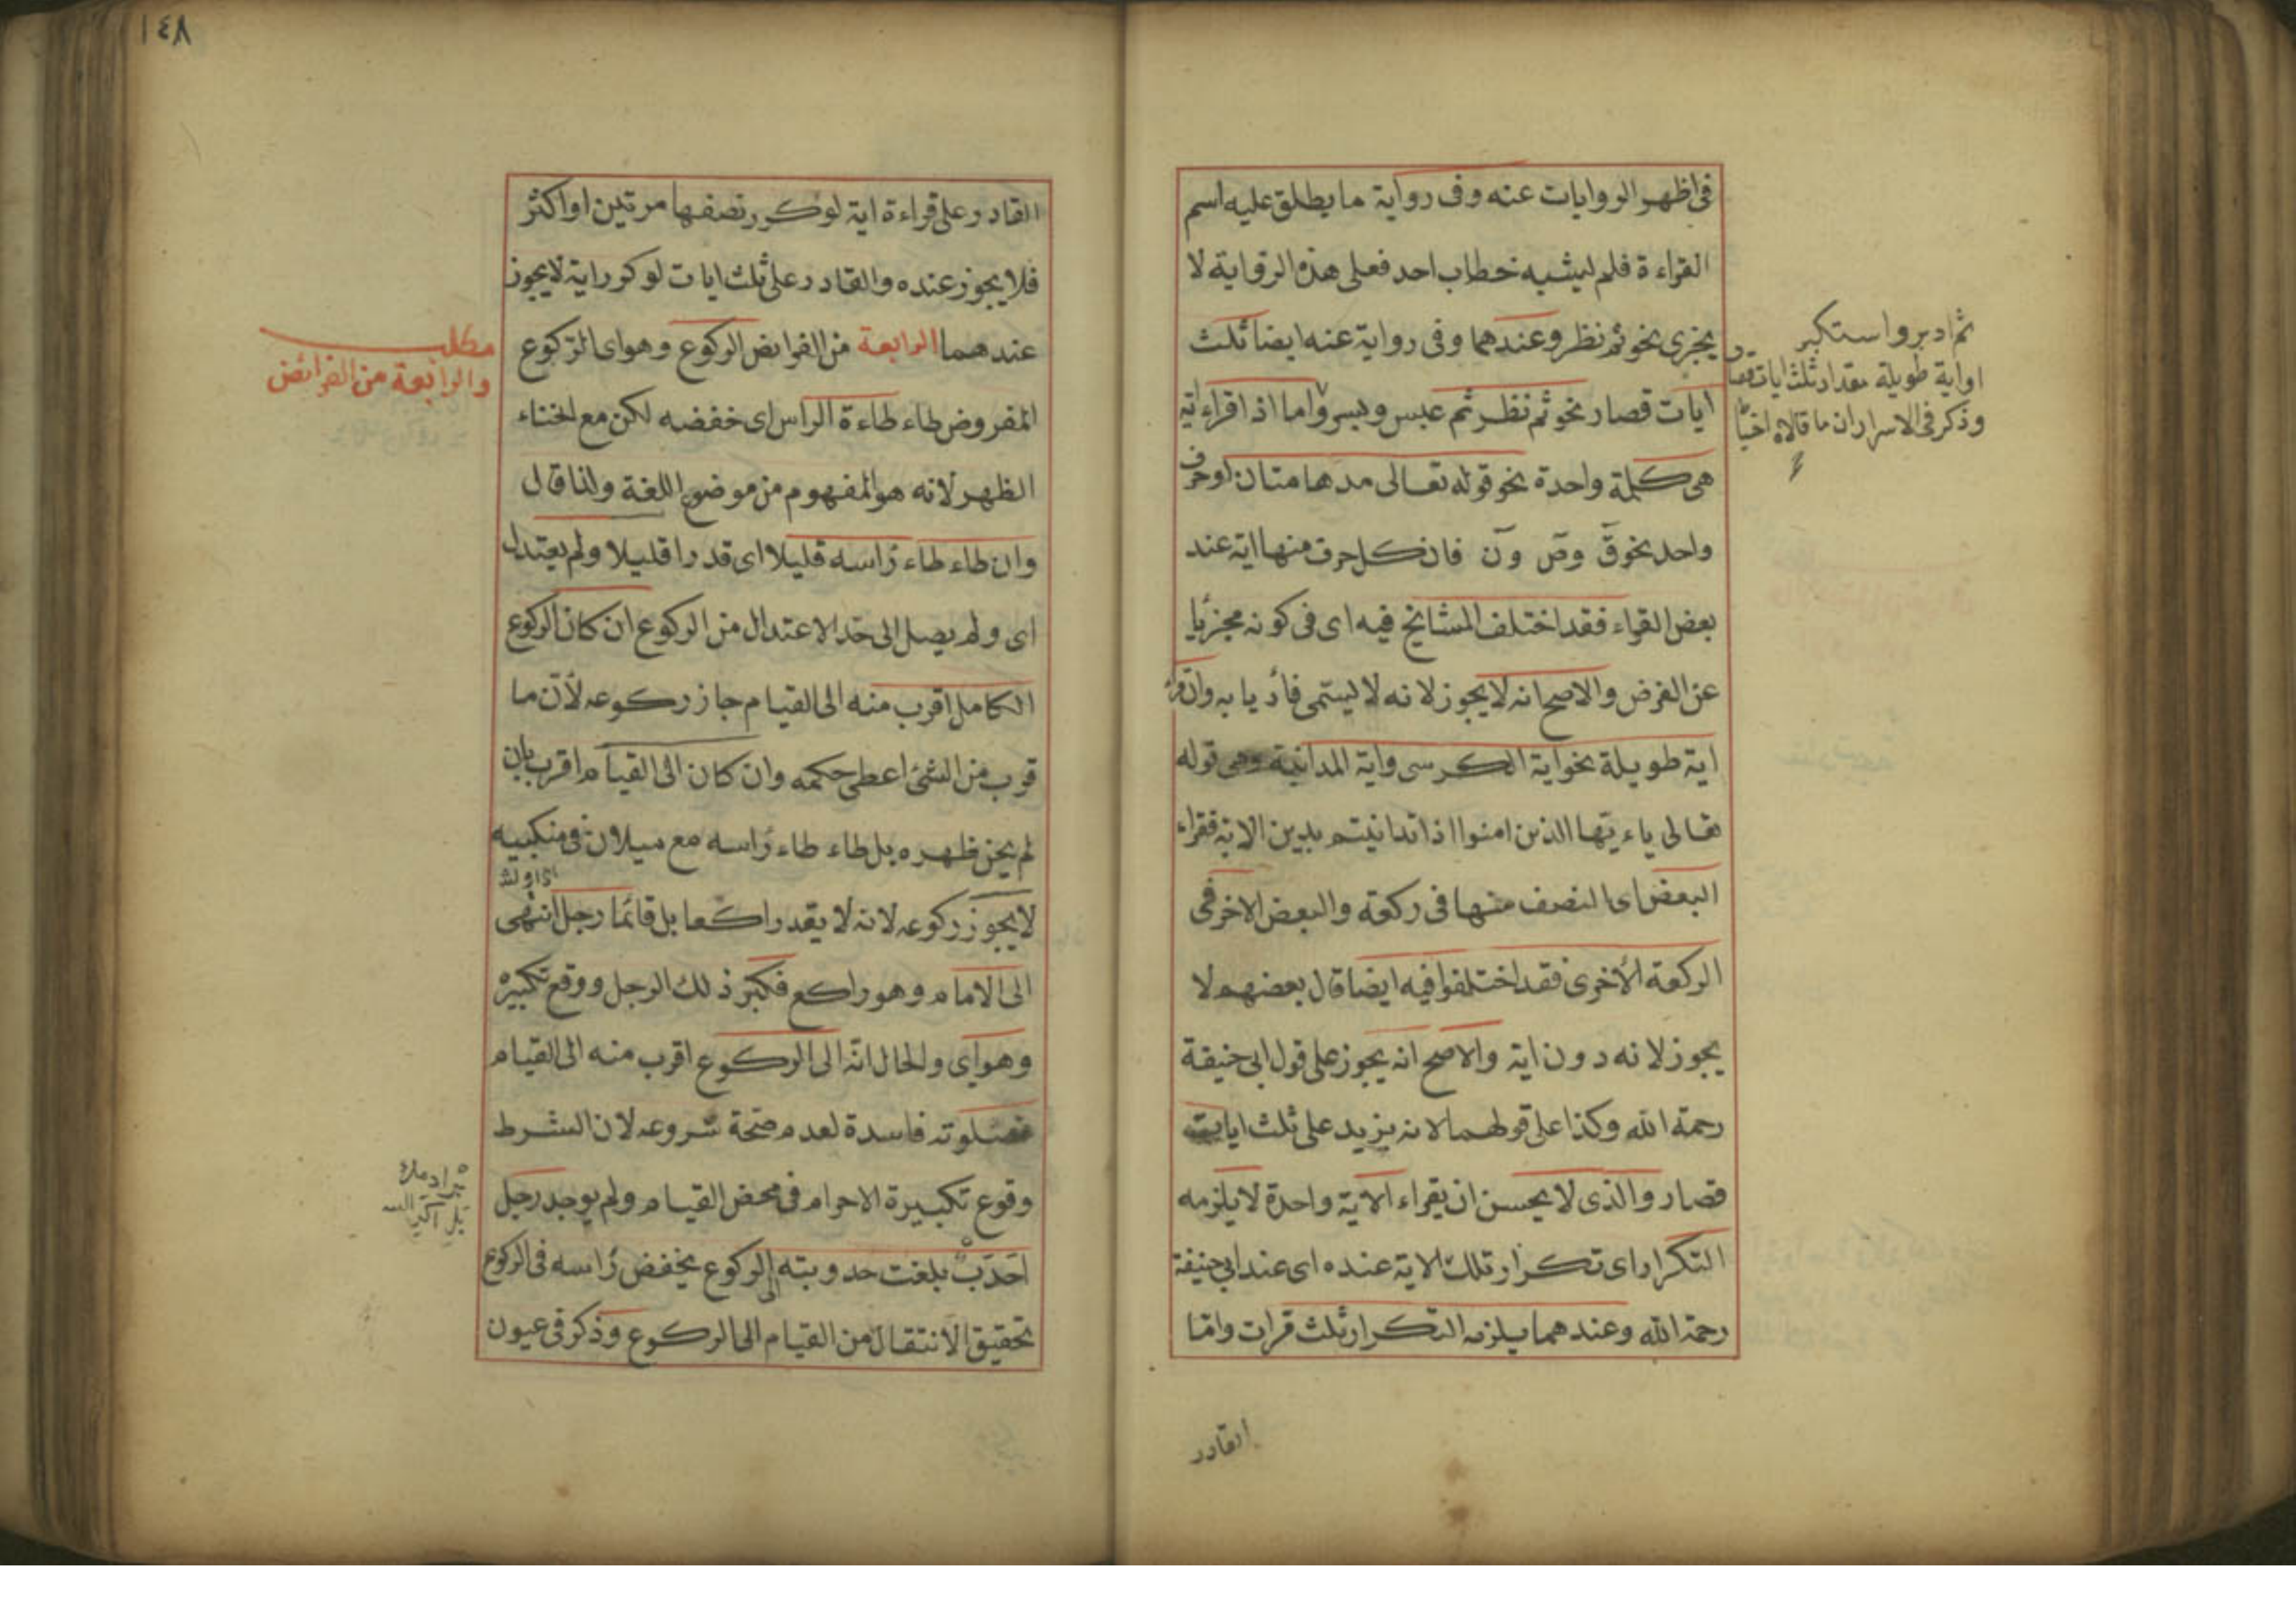 فى اظهر الروايات عنه وفى رواية ما يطلق عليه اسم
القراءة فلم ليشبه خطاب احد فعلى هذه الرواية لا
يجزى نحو ثم نظر وعندهما وفى رواية عنه ايضا ثلث
ايات قصار نحو ثم نظر ثم عبس وبسر واما اذا قراءاية
هى كلمة واحدة نحو قوله تعالى مدهامتان اوحرف
واحد نحو قٓ وصٓ ونٓ فان كل حرف منها اية عند
بعض القراء فقد اختلف المشائخ فيه اى فى كونه مجزئا
عن الفرض والاصح انه لا يجوز لانه لا ليسمى قارئا به وان قراء
اية طويلة نحو اية الكرسى واية المداينة وهى قوله
تعالى ياءيها الذين امنوا اذا تداينتم بدين الاية فقراء
البعض اى النصف منها فى ركعة والبعض الاخر فى
الركعة الأخرى فقد اختلفوا فيه ايضا قال بعضهم لا
يجوز لانه دون اية والاصح انه يجوز على قول ابى حنيفة
رحمة الله وكذا على قولهما لانه يزيد على ثلث ايات
قصار والذى لا يحسن ان يقراء الاية واحدة لا يلزمه
التكرار اى تكرار تلك الاية عنده اى عند ابى حنيفة
رحمة الله وعندهما يلزمه التكرار ثلث قرات واما
ثم ادبر واستكبر
او اية طويلة مقدار ثلث ايات قصار
وذكر فى الاسرار ان ما قالاه احتياط
القادر
١٤٨
القادر على قراءة اية لو كرر نصفها مرتين او اكثر
فلا يجوز عنده والقادر على ثلث ايات لو كرر اية لا يجوز
عندهما الرابعة من الفرايض الركوع وهو اى الركوع
المفروض طاء طاءة الراس اى خفضه لكن مع انحناء
الظهر لانه هو المفهوم من موضوع اللغة ولذا قال
وان طاء طاء رأسه قليلا اى قدرا قليلا ولم يعتدل
اى ولم يصل الى حد الاعتدال من الركوع ان كان الركوع
الكامل اقرب منه الى القيام جاز ركوعه لأن ما
قرب من الشئ اعطى حكمه وان كان الى القيام اقرب بان
لم يحن ظهره بل طاء طاء رأسه مع ميلان فى منكبيه
لا يجوز ركوعه لانه لا يعد راكعا بل قائما رجل انتهى
الى الامام وهو راكع فكبر ذلك الرجل ووقع تكبيره
وهو اى والحال انه الى الركوع اقرب منه الى القيام
فصلوته فاسدة لعدم صحة شروعه لان الشرط
وقوع تكبيرة الاحرام فى محض القيام ولم يوجد رجل
احدب بلغت حدوبته الى الركوع يخفض رأسه فى الركوع
تحقيق الانتقال من القيام الى الركوع وذكر فى عيون
مطلب
والرابعة من الفرائض